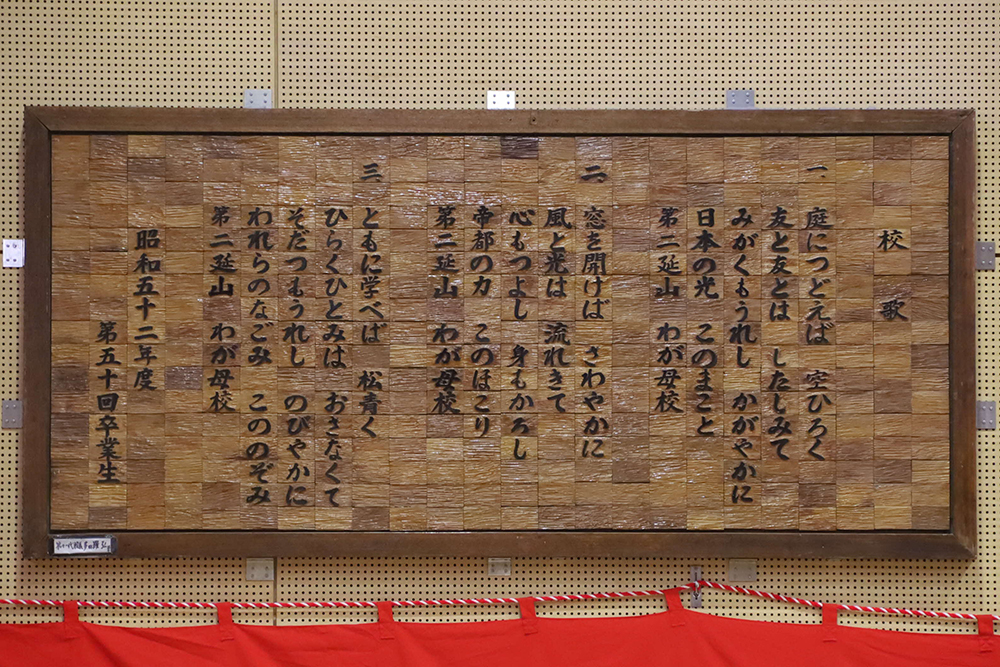 校歌
一 庭につどえば 空ひろく
友と友とは したしみて
みがくもうれし かがやかに
日本の光 このまこと
第二延山 わが母校
二 窓を開けば さわやかに
風と光は 流れきて
心もつよし 身もかろし
帝都の力 このほこり
第二延山 わが母校
三 ともに学べば 松青く
ひらくひとみは おさなくて
そだつもうれし のびやかに
われらのなごみ こののぞみ
第二延山 わが母校
昭和五十二年度
第五十回卒業生